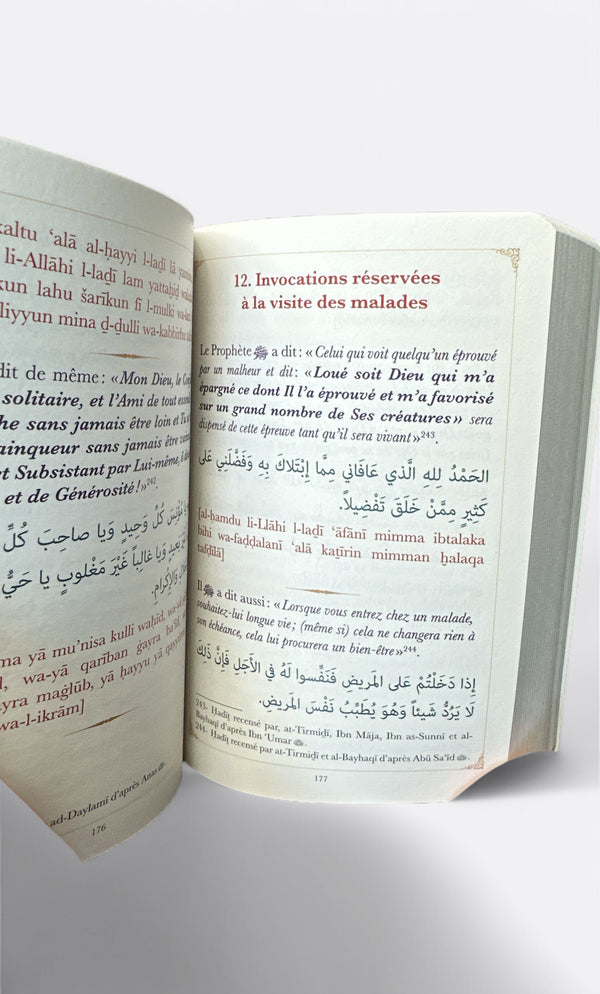 kaltu ʻalā al-ḥayyi l-laḏī lā
li-Allāhi l-laḏī lam yattaḫiḏ
kun lahu šarīkun fī l-mulki wa-
liyyun mina ḏ-ḏulli wa-kabbirhu
dit de même : « Mon Dieu, le
solitaire, et l'Ami de tout
che sans jamais être loin et
ainqueur sans jamais être
et Subsistant par Lui-même, ô
et de Générosité ! »242.
مُؤْنِسَ كُلِّ وَحِيدٍ وَيَا صاحِبَ كُلِّ
بَعِيدٍ وَيا غالِباً غَيْرَ مَغْلُوبٍ يا حَيُّ
وَالإِكْرامِ.
ma yā mu'nisa kulli waḥīd,
, wa-yā qarīban ġayra
yra maġlūb, yā ḥayyu yā
wa-l-ikrām]
ad-Daylamī d'après Anas
176
12. Invocations réservées
à la visite des malades
Le Prophète ﷺ a dit : « Celui qui voit quelqu'un éprouvé
par un malheur et dit : « Loué soit Dieu qui m'a
épargné ce dont Il l'a éprouvé et m'a favorisé
sur un grand nombre de Ses créatures » sera
dispensé de cette épreuve tant qu'il sera vivant »243.
الحَمْدُ لِلهِ الَّذي عَافَانِي مِمَّا إِبْتَلاكَ بِهِ وَفَضَّلَنِي عَلى
كَثِيرٍ مِمَّنْ خَلَقَ تَفْضِيلاً.
[al-ḥamdu li-Llāhi l-laḏī ʻāfānī mimma ibtalaka
bihi wa-faḍḍalanī ʻalā kaṯīrin mimman ḫalaqa
tafḍīlā]
Il ﷺ a dit aussi : « Lorsque vous entrez chez un malade,
souhaitez-lui longue vie ; (même si) cela ne changera rien à
son échéance, cela lui procurera un bien-être »244.
إِذا دَخَلْتُمْ عَلى المَرِيضِ فَنَفِّسوا لَهُ في الأَجَلِ فَإِنَّ ذَلِكَ
لا يَرُدُّ شَيْئاً وَهُوَ يُطَيِّبُ نَفْسَ المَرِيضِ.
243- Ḥadīṯ recensé par, at-Tirmiḏī, Ibn Māja, Ibn as-Sunnī et al-
Bayhaqī d'après Ibn ʻUmar
244- Ḥadīṯ recensé par at-Tirmiḏī et al-Bayhaqī d'après Abū Saʻīd
177